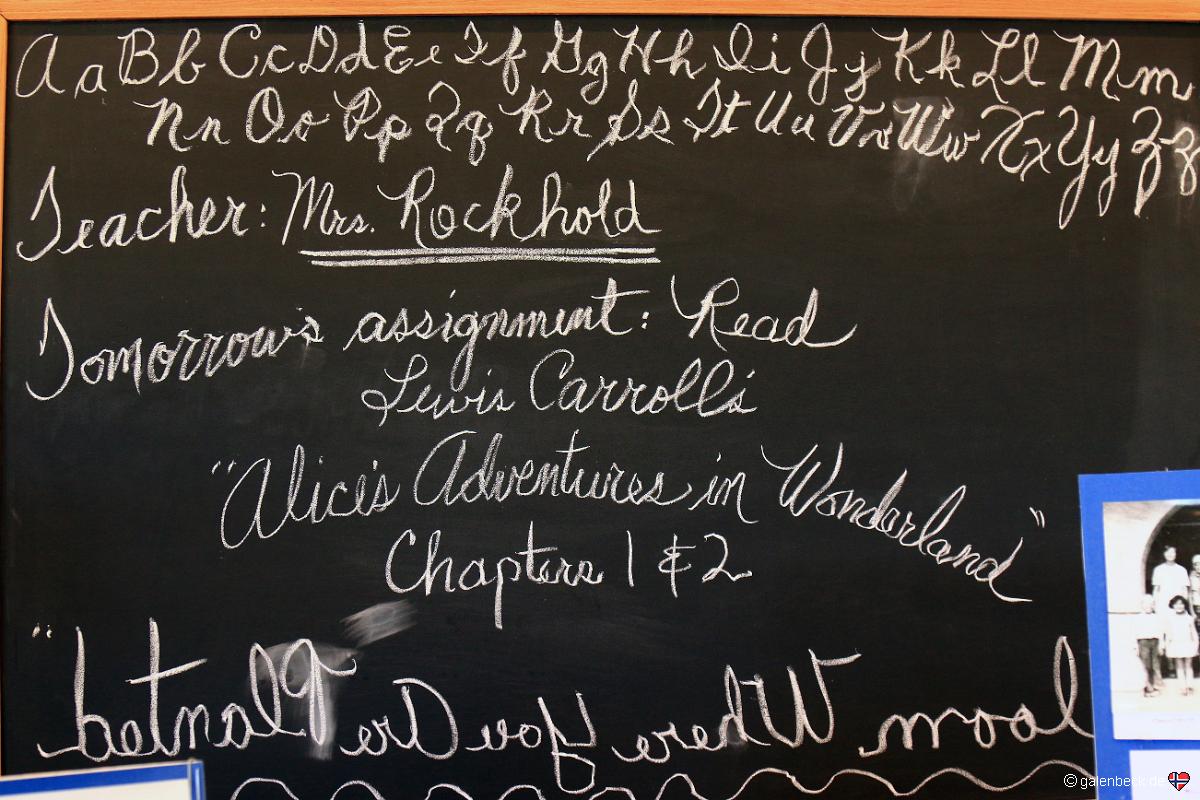 Aa Bb Cc Dd Ee Ff Gg Hh Ii Jj Kk Ll Mm
Nn Oo Pp Qq Rr Ss Tt Uu Vv Ww Xx Yy Zz
Teacher: Mrs. Rockhold
Tomorrow's assignment: Read
Lewis Carroll's
"Alice's Adventures in Wonderland"
Chapters 1 & 2
loom Where You Are Planted"
© galenbeck.de